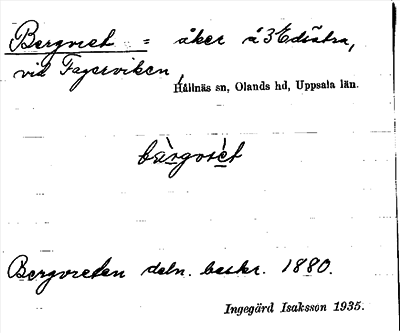 Bergvret = åker å 3 Edsätra,
vid Fagerviken,
Hållnäs sn, Olands hd, Uppsala län.
bärgvrèt
Bergvreten deln. beskr. 1880.
Ingegärd Isaksson 1935.